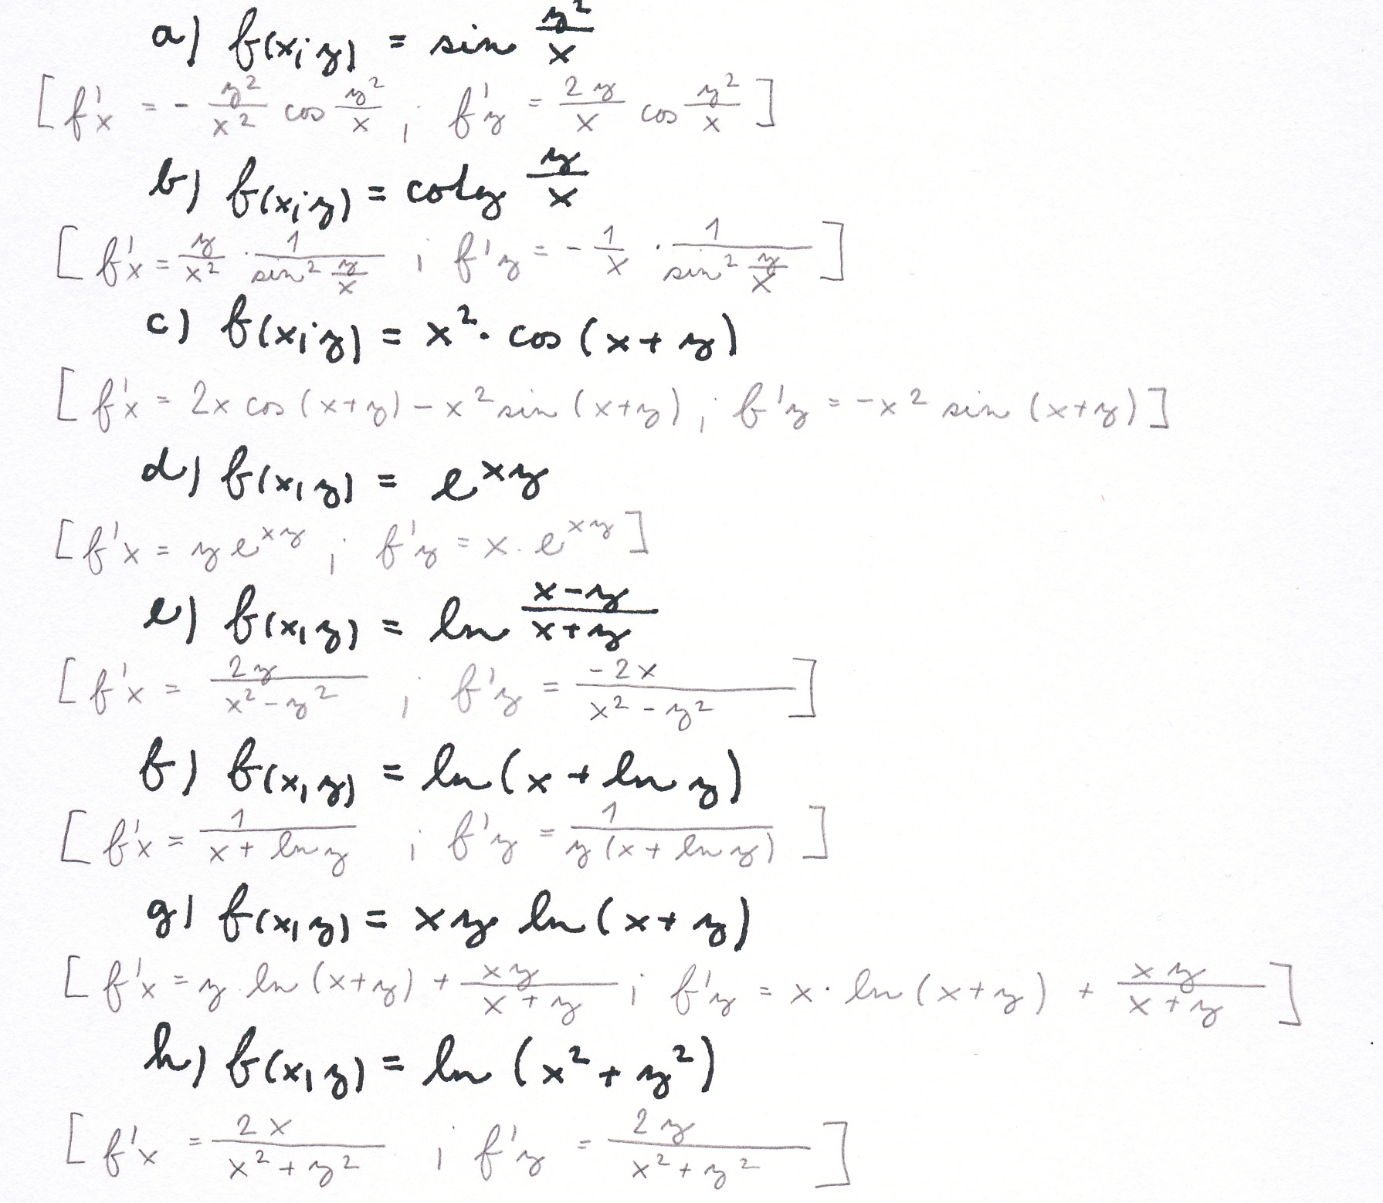 a) f(x;y) = sin y²/x
[f'x = - y²/x² cos y²/x ; f'y = 2y/x cos y²/x]
b) f(x;y) = cotg y/x
[f'x = y/x² · 1/(sin² y/x) ; f'y = - 1/x · 1/(sin² y/x)]
c) f(x;y) = x² · cos (x+y)
[f'x = 2x cos (x+y) - x² sin (x+y) ; f'y = -x² sin (x+y)]
d) f(x,y) = e^xy
[f'x = y e^xy ; f'y = x · e^xy]
e) f(x,y) = ln (x-y)/(x+y)
[f'x = 2y/(x²-y²) ; f'y = -2x/(x²-y²)]
f) f(x,y) = ln(x + ln y)
[f'x = 1/(x + ln y) ; f'y = 1/(y(x + ln y))]
g) f(x,y) = xy ln(x+y)
[f'x = y · ln (x+y) + xy/(x+y) ; f'y = x · ln (x+y) + xy/(x+y)]
h) f(x,y) = ln (x²+y²)
[f'x = 2x/(x²+y²) ; f'y = 2y/(x²+y²)]